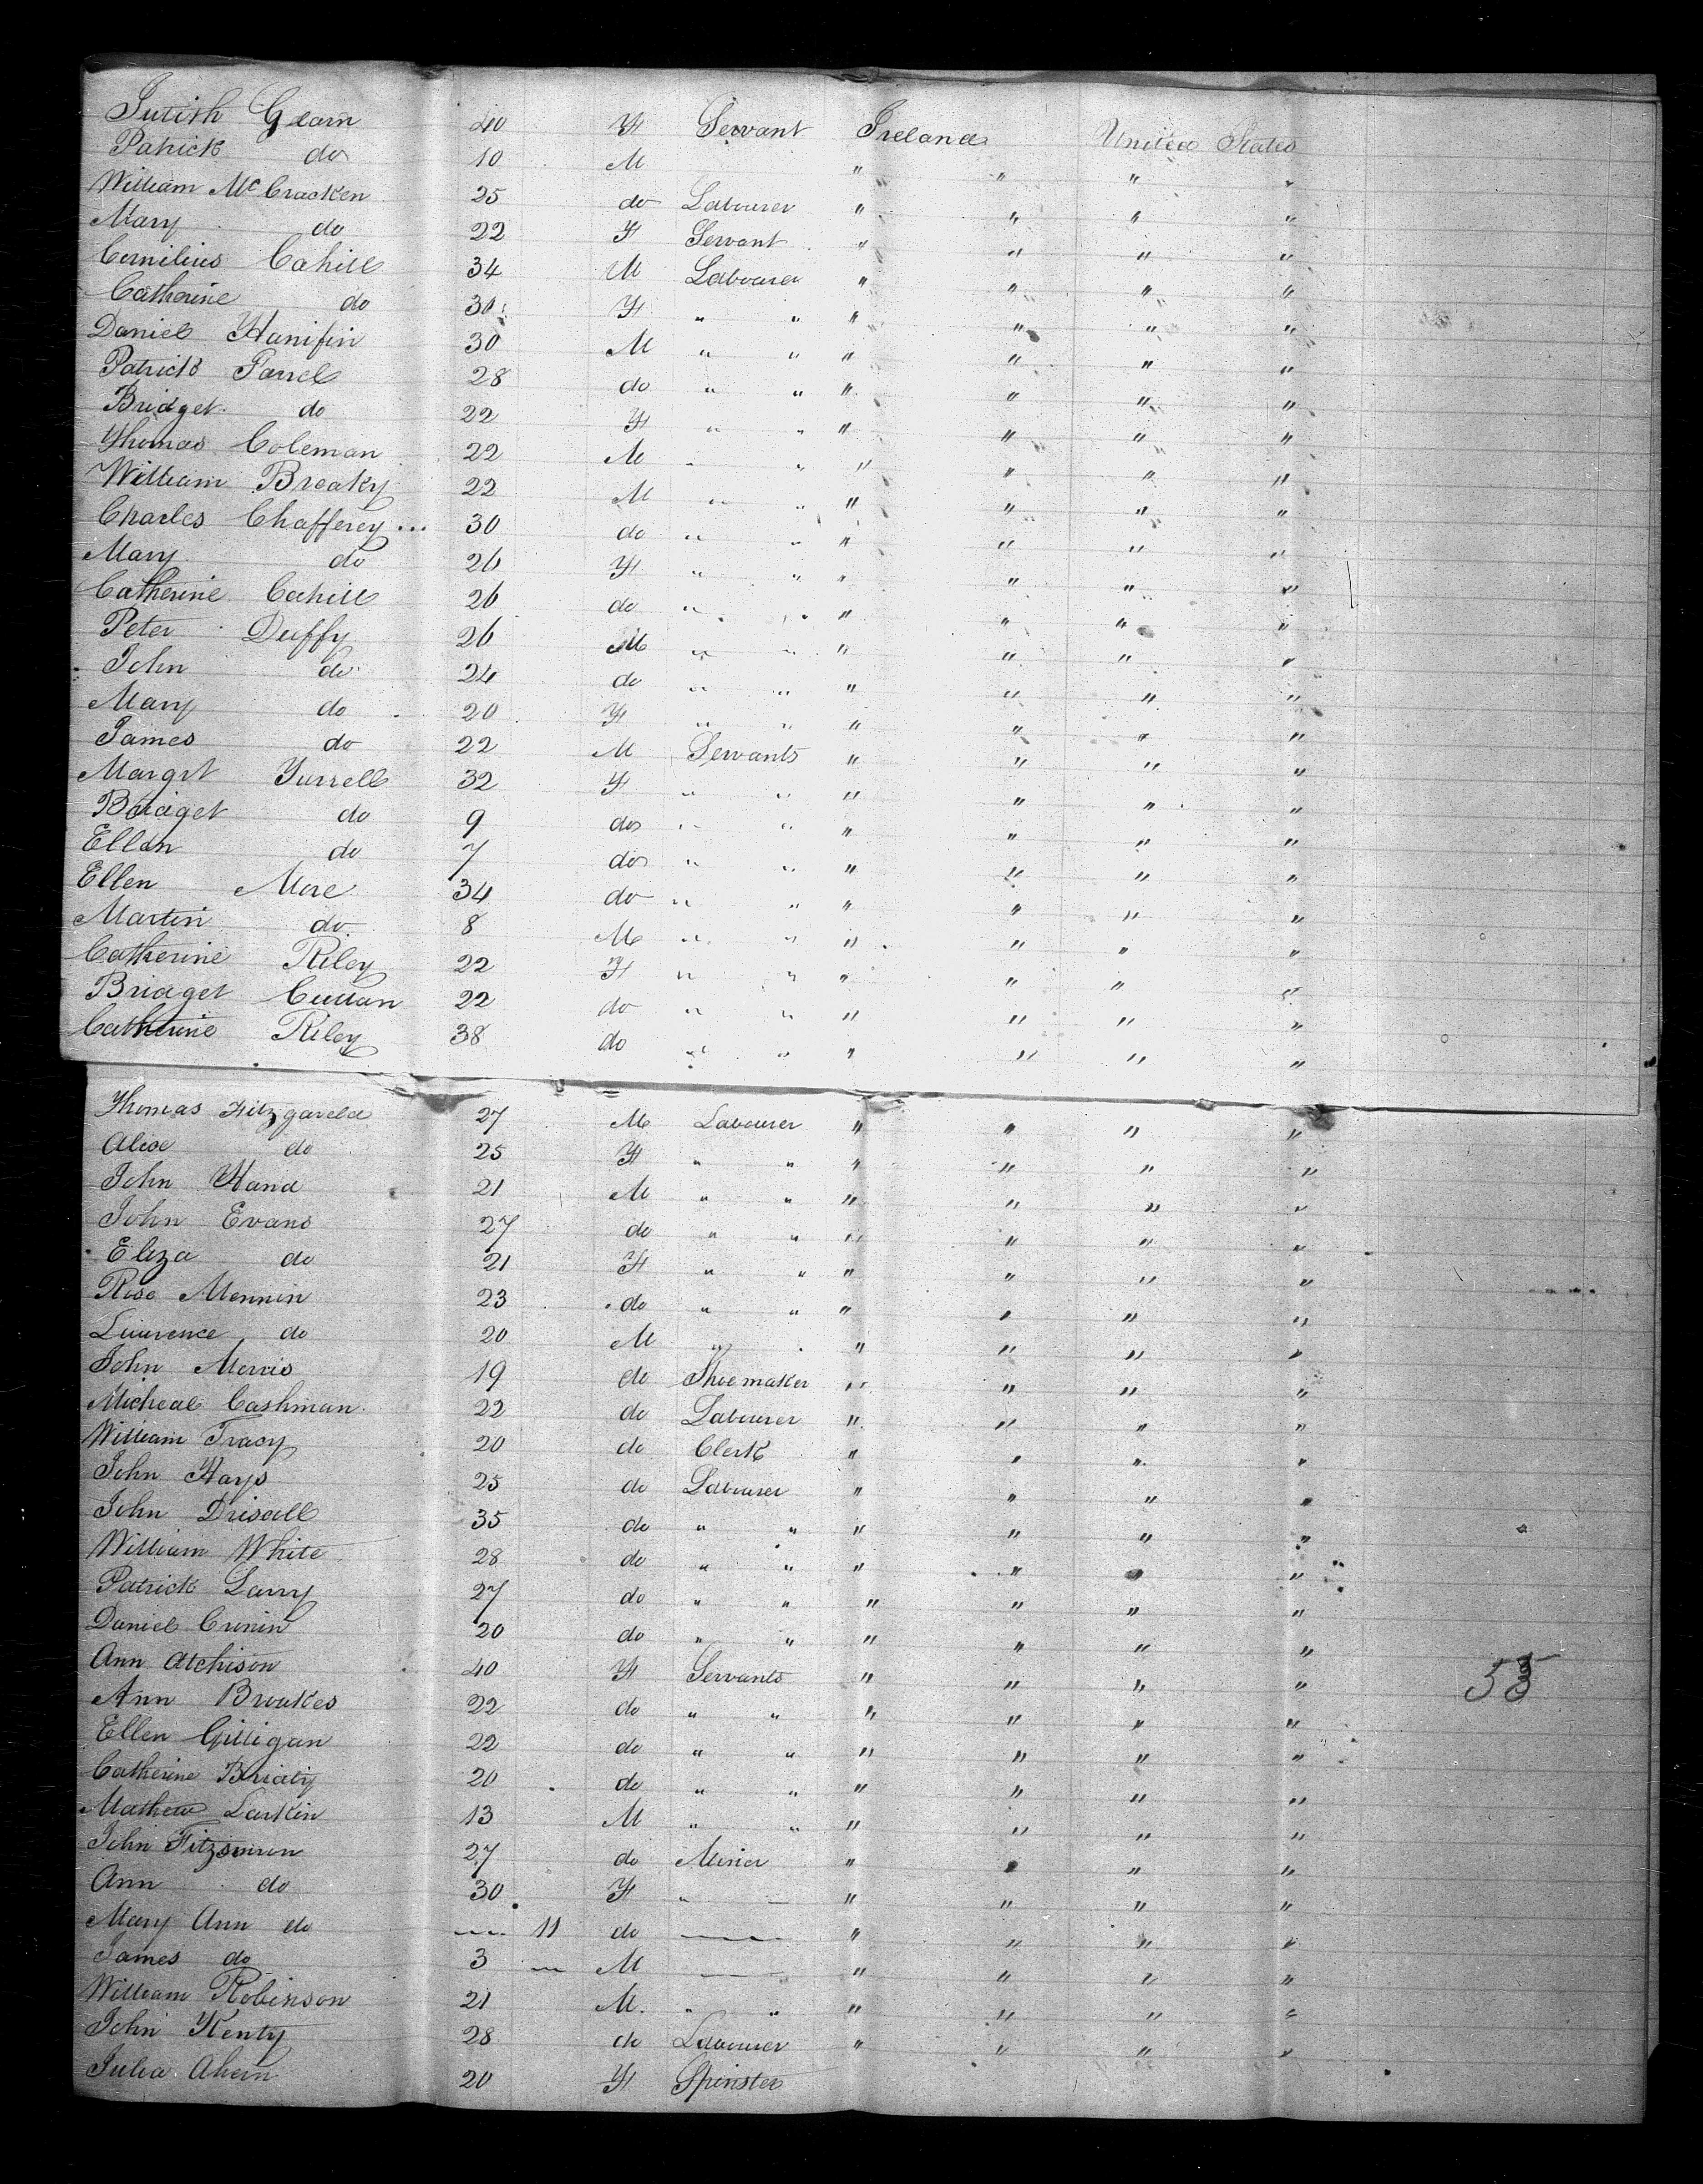 Judith Glam 40 F Servant Ireland United States
Patrick do 10 M " " " "
William McCracken 25 do Labourer " " " "
Mary do 22 F Servant " " " "
Cornilius Cahill 34 M Labourer " " " "
Catherine do 30 F " " " " " "
Daniel Hanifin 30 M " " " " " "
Patrick Farrel 28 do " " " " " "
Bridget do 22 F " " " " " "
Thomas Coleman 22 M " " " " " "
William Breaky 22 M " " " " " "
Charles Chafferey ... 30 do " " " " " "
Mary do 26 F " " " " " "
Catherine Cahill 26 do " " " " " "
Peter Duffy 26 M " " " " " "
John do 24 do " " " " " "
Mary do 20 F " " " " " "
James do 22 M Servants " " " "
Margrt Turrell 32 F " " " " " "
Bridget do 9 do " " " " " "
Ellen do 7 do " " " " " "
Ellen More 34 do " " " " " "
Martin do 8 M " " " " " "
Catherine Riley 22 F " " " " " "
Bridget Cullan 22 do " " " " " "
Catherine Riley 38 do " " " " " "
Thomas Fitzgareld 27 M Labourer " " " "
Alice do 25 F " " " " " "
John Hand 21 M " " " " " "
John Evans 27 do " " " " " "
Eliza do 21 F " " " " " "
Rose Mennin 23 do " " " " " "
Laurence do 20 M " " " " "
John Morris 19 do Shoemaker " " " "
Micheal Cashman 22 do Labourer " " " "
William Tracy 20 do Clerk " " " "
John Hays 25 do Labourer " " " "
John Driscoll 35 do " " " " " "
William White 28 do " " " " " "
Patrick Larry 27 do " " " " " "
Daniel Cronin 20 do " " " " " "
Ann Atchison 40 F Servants " " " "
Ann Brookes 22 do " " " " " "
Ellen Gilligan 22 do " " " " " "
Catherine 20 do " " " " " "
Mathew Larkin 13 M " " " " " "
John Fitzsimon 27 do Miner " " " "
Ann do 30 F " — " " " "
Mary Ann do — 11 do — " " " "
James do 3 — M — " " " "
William Robinson 21 M. " " " " " "
John Henty 28 do Labourer " " " "
Julia Ahern 20 F Spinster